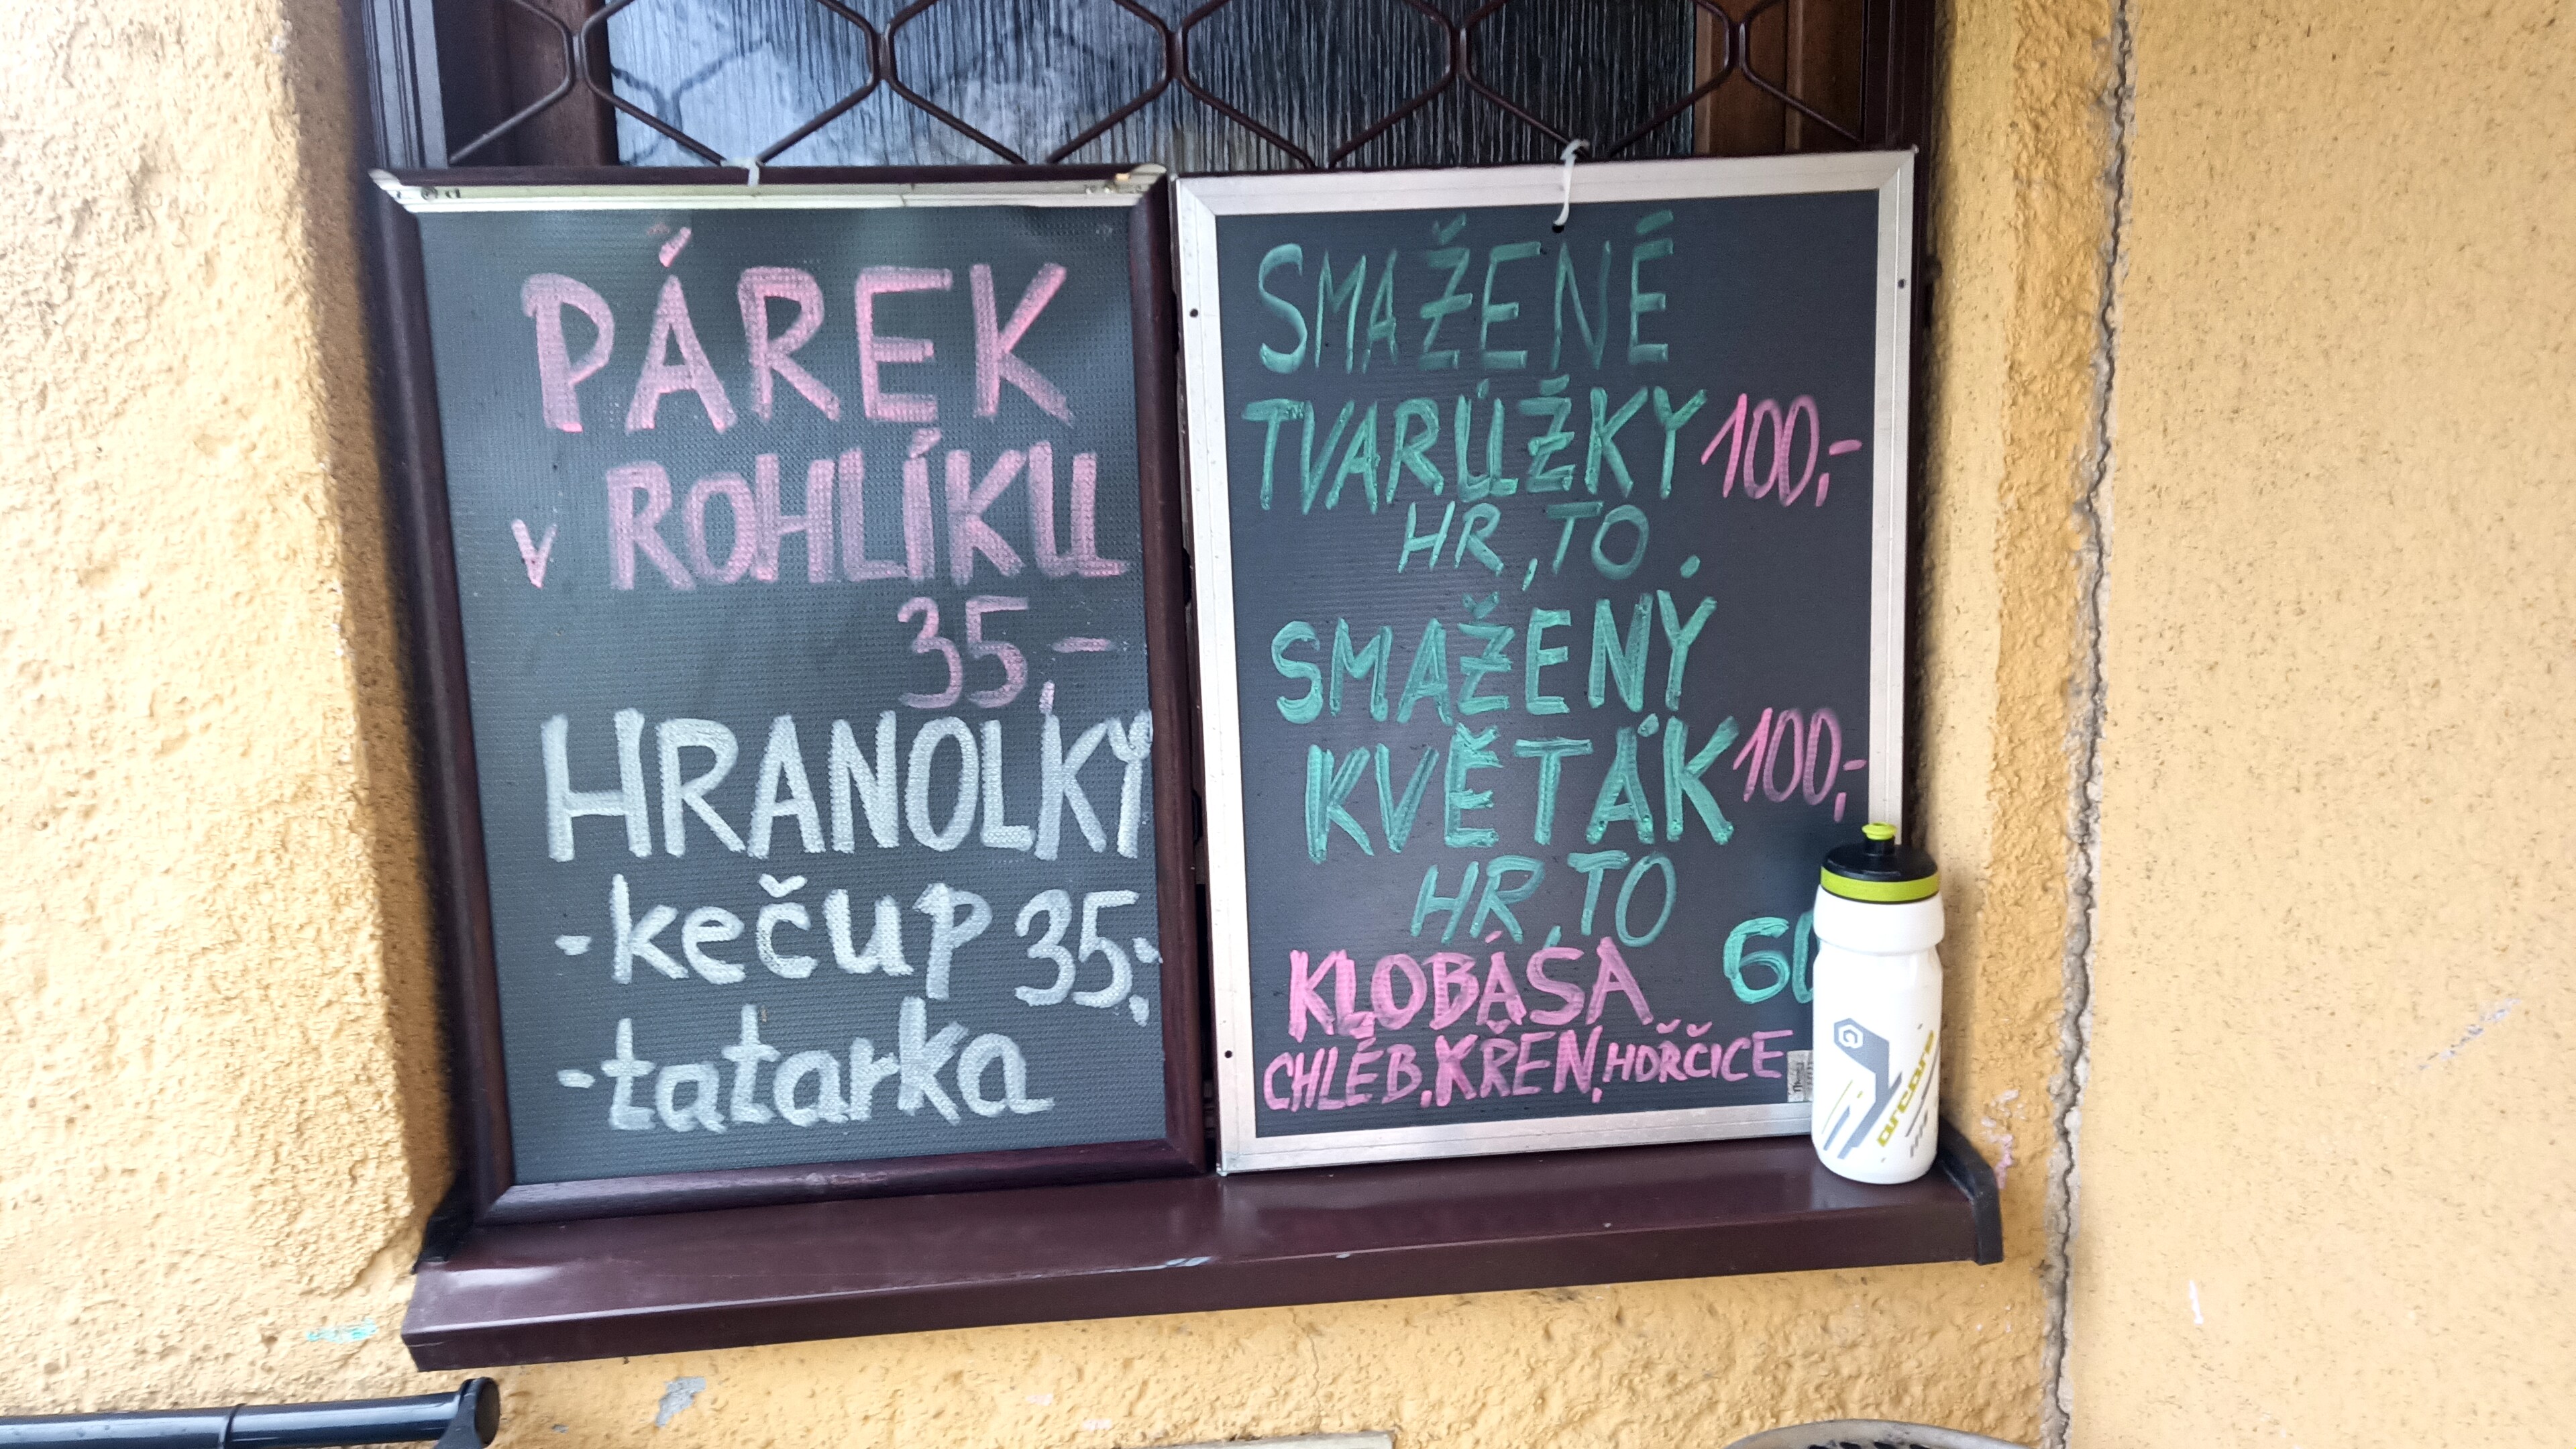 PÁREK
v ROHLÍKU
35,-
HRANOLKY
-kečup 35,-
-tatarka
SMAŽENÉ
TVARŮŽKY 100,-
HR, TO.
SMAŽENÝ
KVĚTÁK 100,-
HR, TO
KLOBÁSA 60
CHLÉB, KŘEN, HOŘČICE